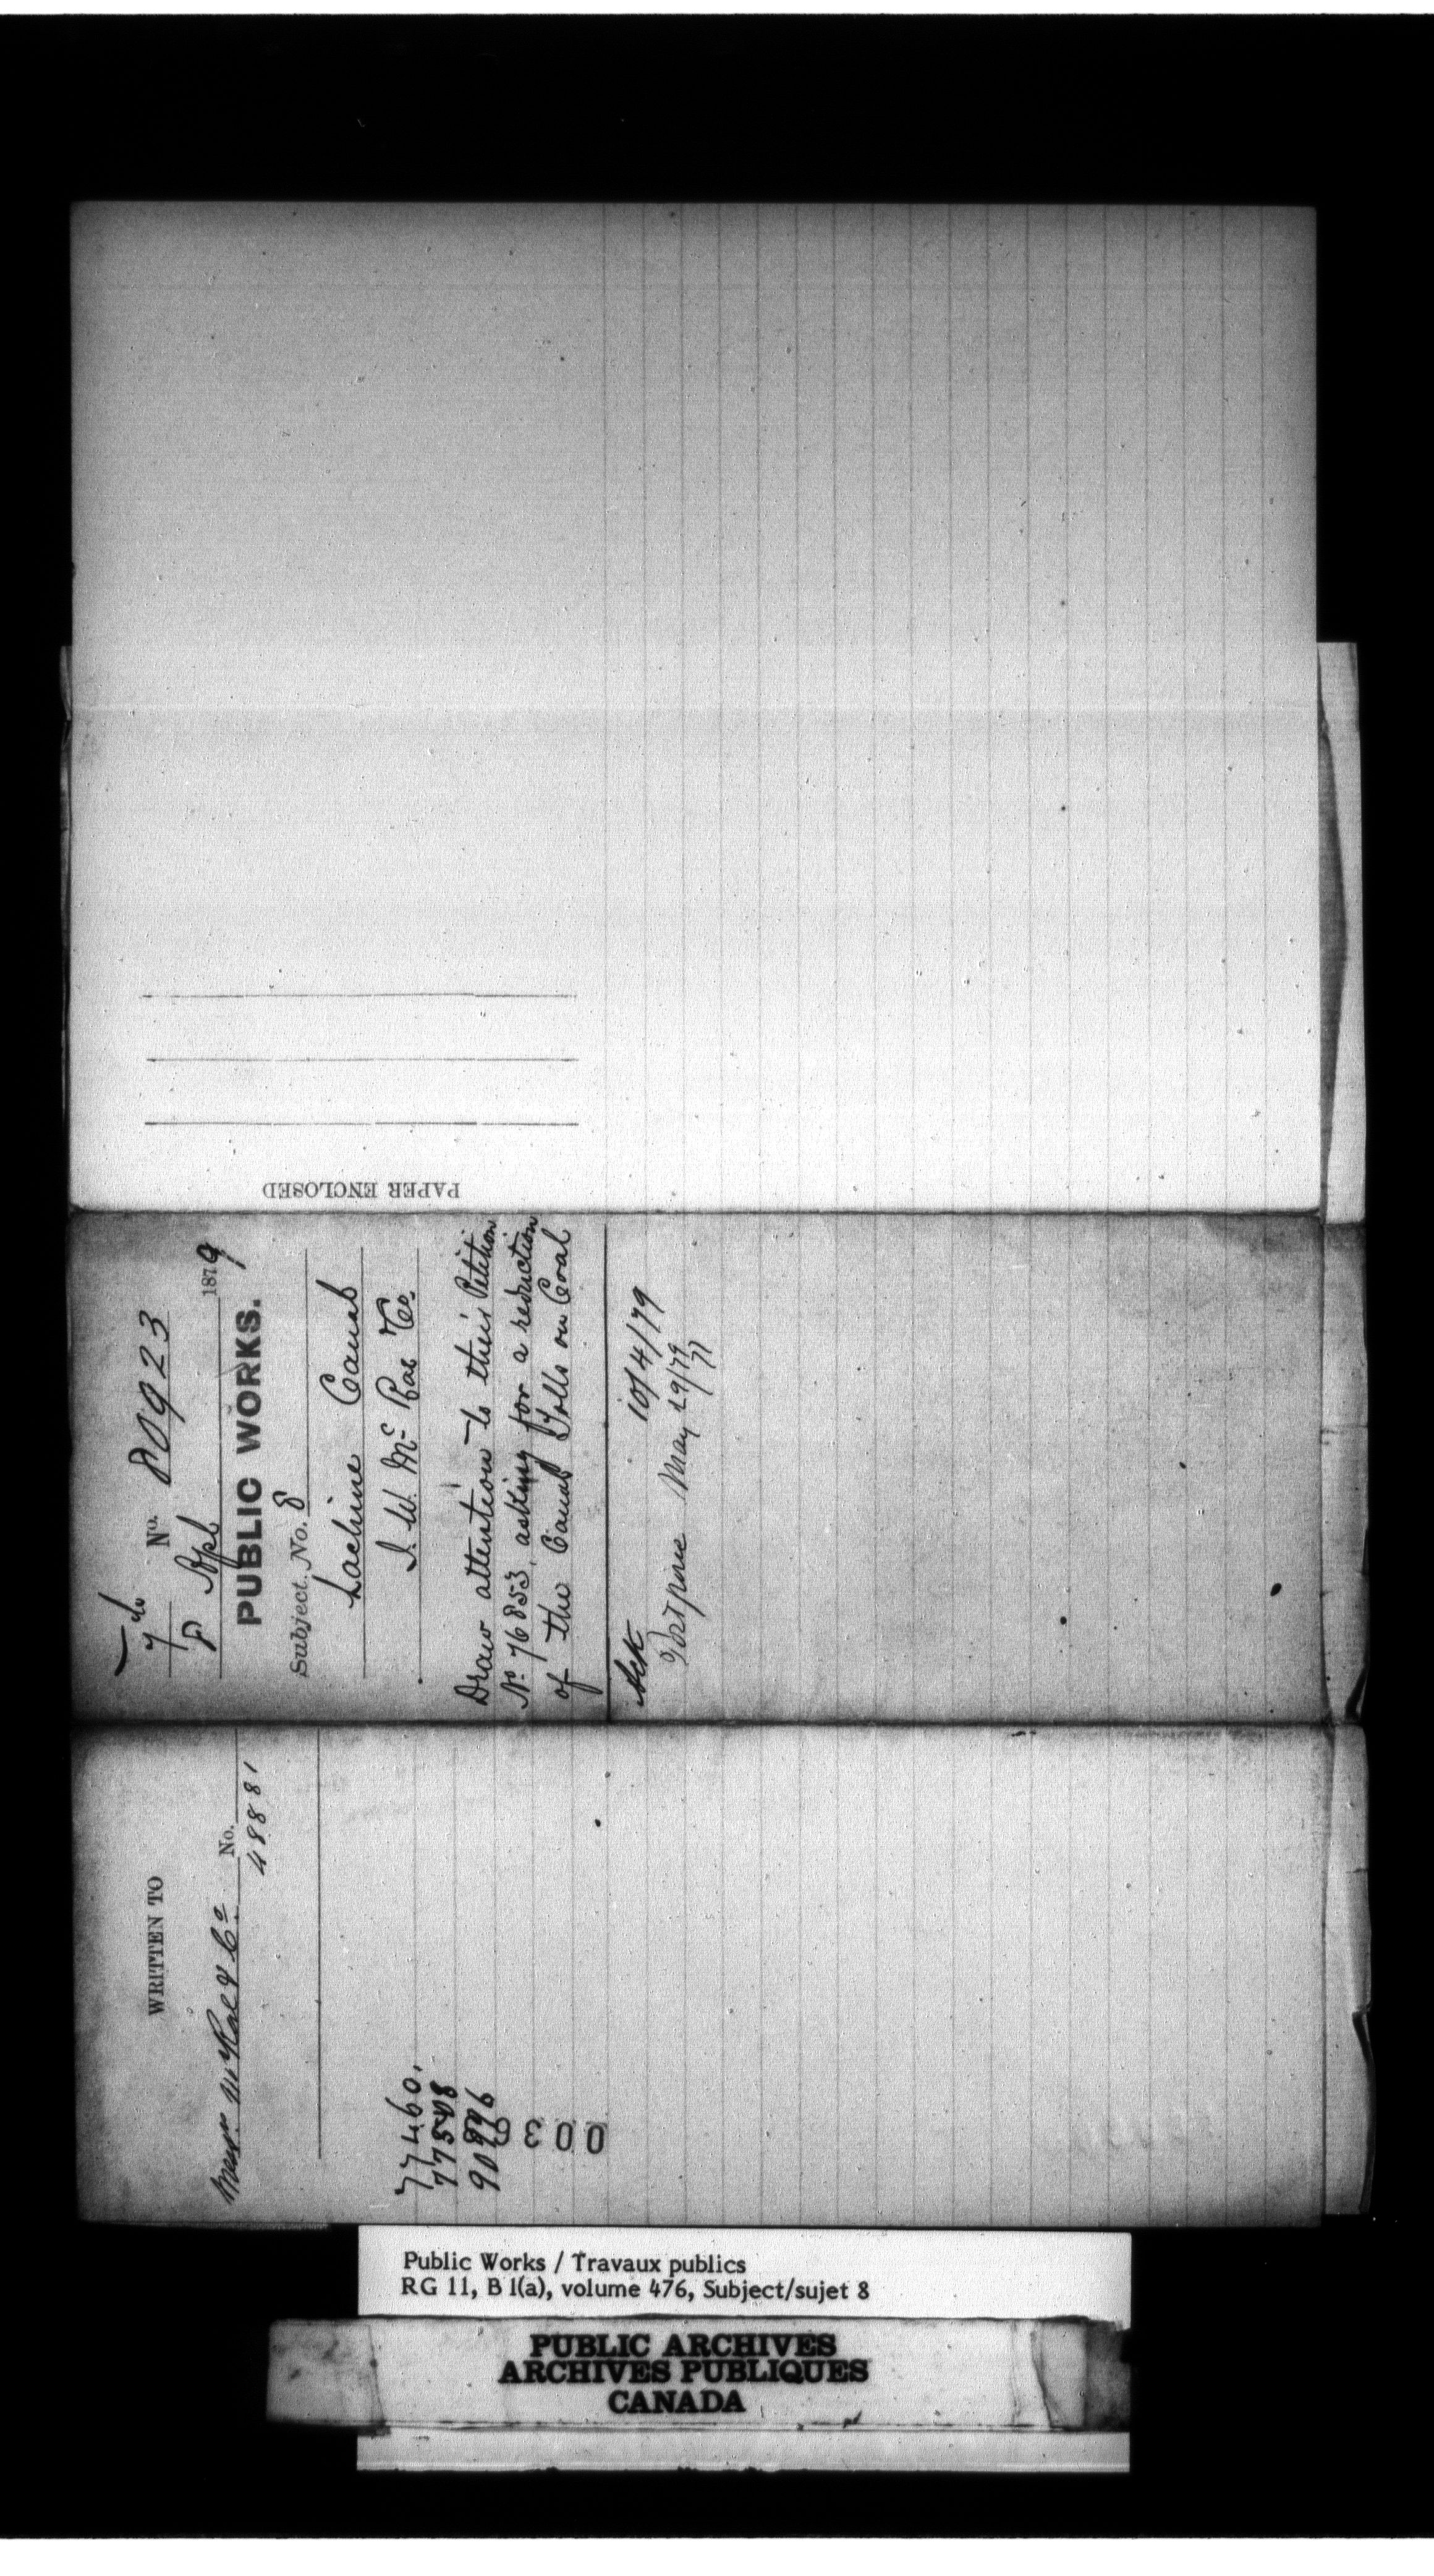 PAPER ENCLOSED
7 No. 80923
8 Apl 1879
PUBLIC WORKS.
Subject No. 8
Lachine Canal
J. W. McRae & Co.
Draw attention to their Petition
No 76853, asking for a reduction
of the Canal Tolls on Coal
Ack 10/4/79
Postpone May 29/79
WRITTEN TO
Messrs McRae & Co. No.
48881
77460.
77548
90896
Public Works / Travaux publics
RG 11, B 1(a), volume 476, Subject/sujet 8
PUBLIC ARCHIVES
ARCHIVES PUBLIQUES
CANADA